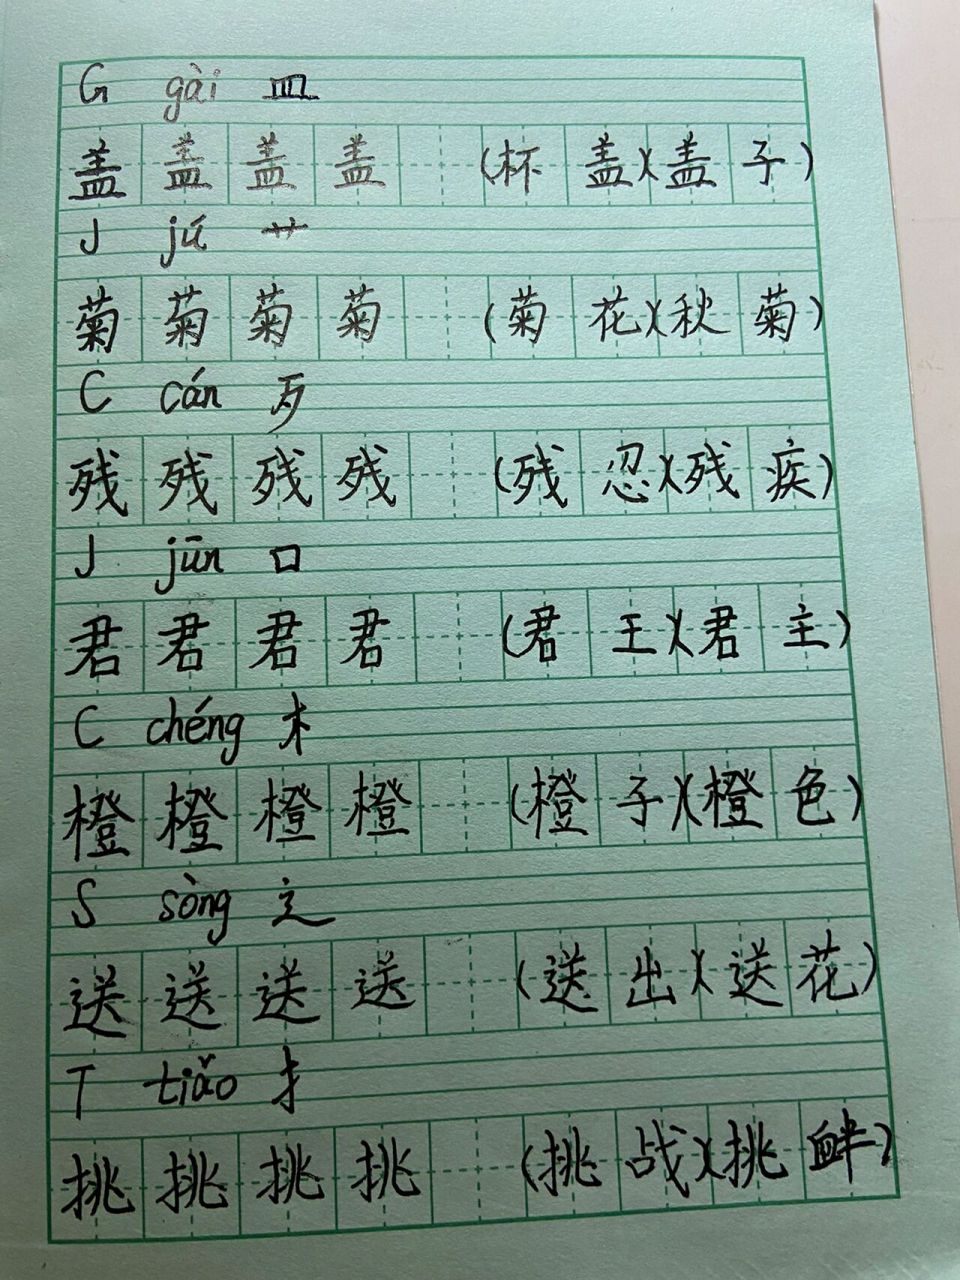 G gài 皿
盖 盖 盖 盖 (杯 盖)(盖 子)
J jú 艹
菊 菊 菊 菊 (菊 花)(秋 菊)
C cán 歹
残 残 残 残 (残 忍)(残 疾)
J jūn 口
君 君 君 君 (君 王)(君 主)
C chéng 木
橙 橙 橙 橙 (橙 子)(橙 色)
S sòng 辶
送 送 送 送 (送 出)(送 花)
T tiǎo 扌
挑 挑 挑 挑 (挑 战)(挑 衅)